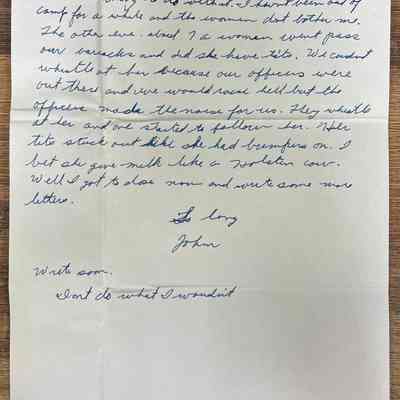 to do without. I havnt been out of
camp for a while and the women dont bother me.
The other eve. about 7 a women went pass
our barracks and did she have tits. We couldnt
whistle at her because our officers were
out there and we would raise hell but the
officers made the noise for us. They whistle
at her and one started to follow her. Her
tits stuck out like she had bumpers on. I
bet she give milk like a Holsten cow.
Well I got to close now and write some more
letters.
So long
John
Write soon.
Dont do what I wouldn't